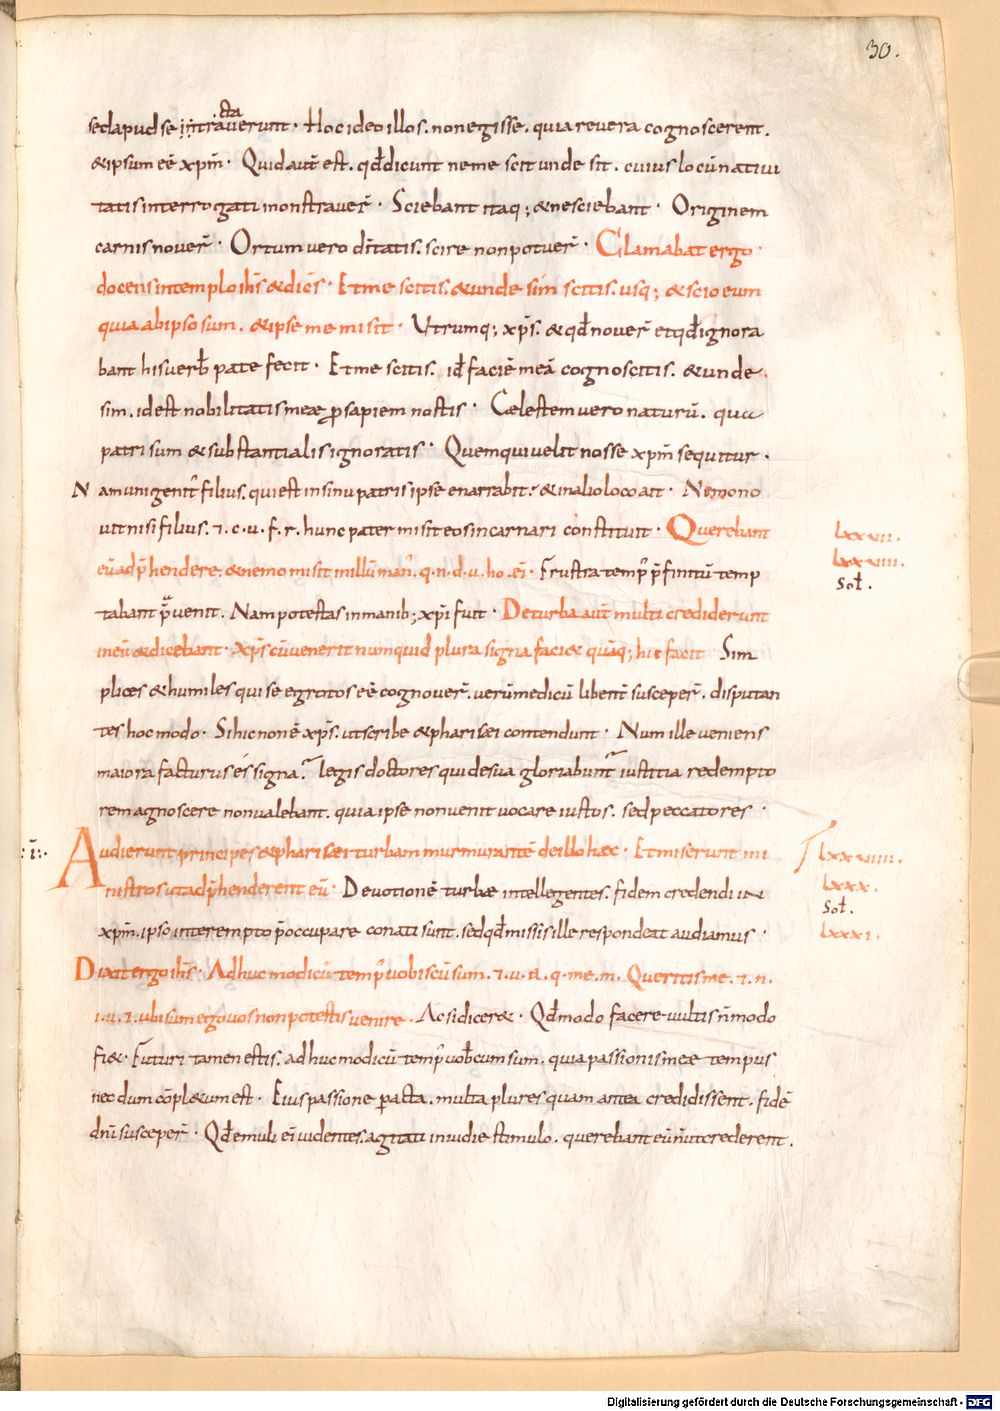 30.
sed apud se intraverunt · Hoc ideo illos . non egisse . quia revera cognoscerent .
cta
& ipsum eē xp̄m · Quid aut̄ est . qd̄ dicunt ne me scit unde sit . cuius locū nativi
tatis interrogati monstraver̄ · Sciebant itaq; & nesciebant · Originem
carnis nover̄ · Ortum vero divitatis . scire non potuer̄ · Clamabat ergo
docens in templo ih̄s & dicēs · Et me scitis . & unde sim scitis . usq; & scio eum
quia ab ipso sum . & ipse me misit · Utrumq; xp̄s . & qd̄ nover̄ et qd̄ ignora
bant his verb̄ pate fecit · Et me scitis . id̄ faciē meā cognoscitis . & unde .
sim . id est nobilitatis meæ ꝓsapiem nostis · Cælestem vero naturū . qua
patri sum & substantialis ignoratis · Quem qui velit nosse xp̄m sequitur .
Nam unigenit᾽ filius . qui est in sinu patris ipse enarrabit : & in alio loco ait · Nemo no
vit nisi filius . &. c . u . f . r . hunc pater misit eos incarnari constituit · Querebant
eū adp̄hendere . & nemo misit in illū man᾽ . q . n . d . u . ho . ei᾽ · Frustra temp᾽ p̄finitū temp
tabant p̄venit . Nam potestas in manib; xp̄i fuit · De turba aut̄ multi crediderunt
in eū & dicebant · Xp̄s cū venerit numquid plura signa faci& quāq; hic facit Sim
plices & humiles qui se egrotos eē cognover̄ . verū medicū libent᾽ susceper̄ . disputan
tes hoc modo · Si hic non ē xp̄s . ut scribe & pharisæi contendunt · Num ille veniens
maiora facturus ē signa ? legis doctores qui de sua gloriabunt᾽ iustitia redempto
rem agnoscere non valebant . quia ipse non venit vocare iustos . sed peccatores ·
Audierunt principes & pharisæi turbam murmurantē de illo hæc · Et miserunt mi
nistros ut adp̄henderent eū · Devotionē turbæ intellegentes . fidem credendi in
xp̄m . ipso interempto p̄occupare conati sunt . sed qd̄ missis ille respondeat audiamus ·
Dixit ergo ih̄s · Adhuc modicū temp᾽ vobiscū sum . &. u . a . q . me . m . Queritis me . &. n .
i . u . &. ubi sum ego vos non potestis venire . Ac si dicer& · Qd̄ modo facere vultis n̄ modo
fi& · Futuri tamen estis . adhuc modicū temp᾽ vob̄cum sum . quia passionis meæ tempus
nec dum cōpl&um est · Eius passione ꝑacta . multa plures quam antea credidissent . fidē
dn̄i susceper̄ · Qd̄ emuli ei᾽ videntes . agitati invidie stimulo . querebant eū n̄ ut crederent .
lxxvii .
lxxviii .
Sol̄ .
: i :.
lxxviiii .
lxxx .
Sol̄ .
lxxxi .
Digitalisierung gefördert durch die Deutsche Forschungsgemeinschaft - DFG